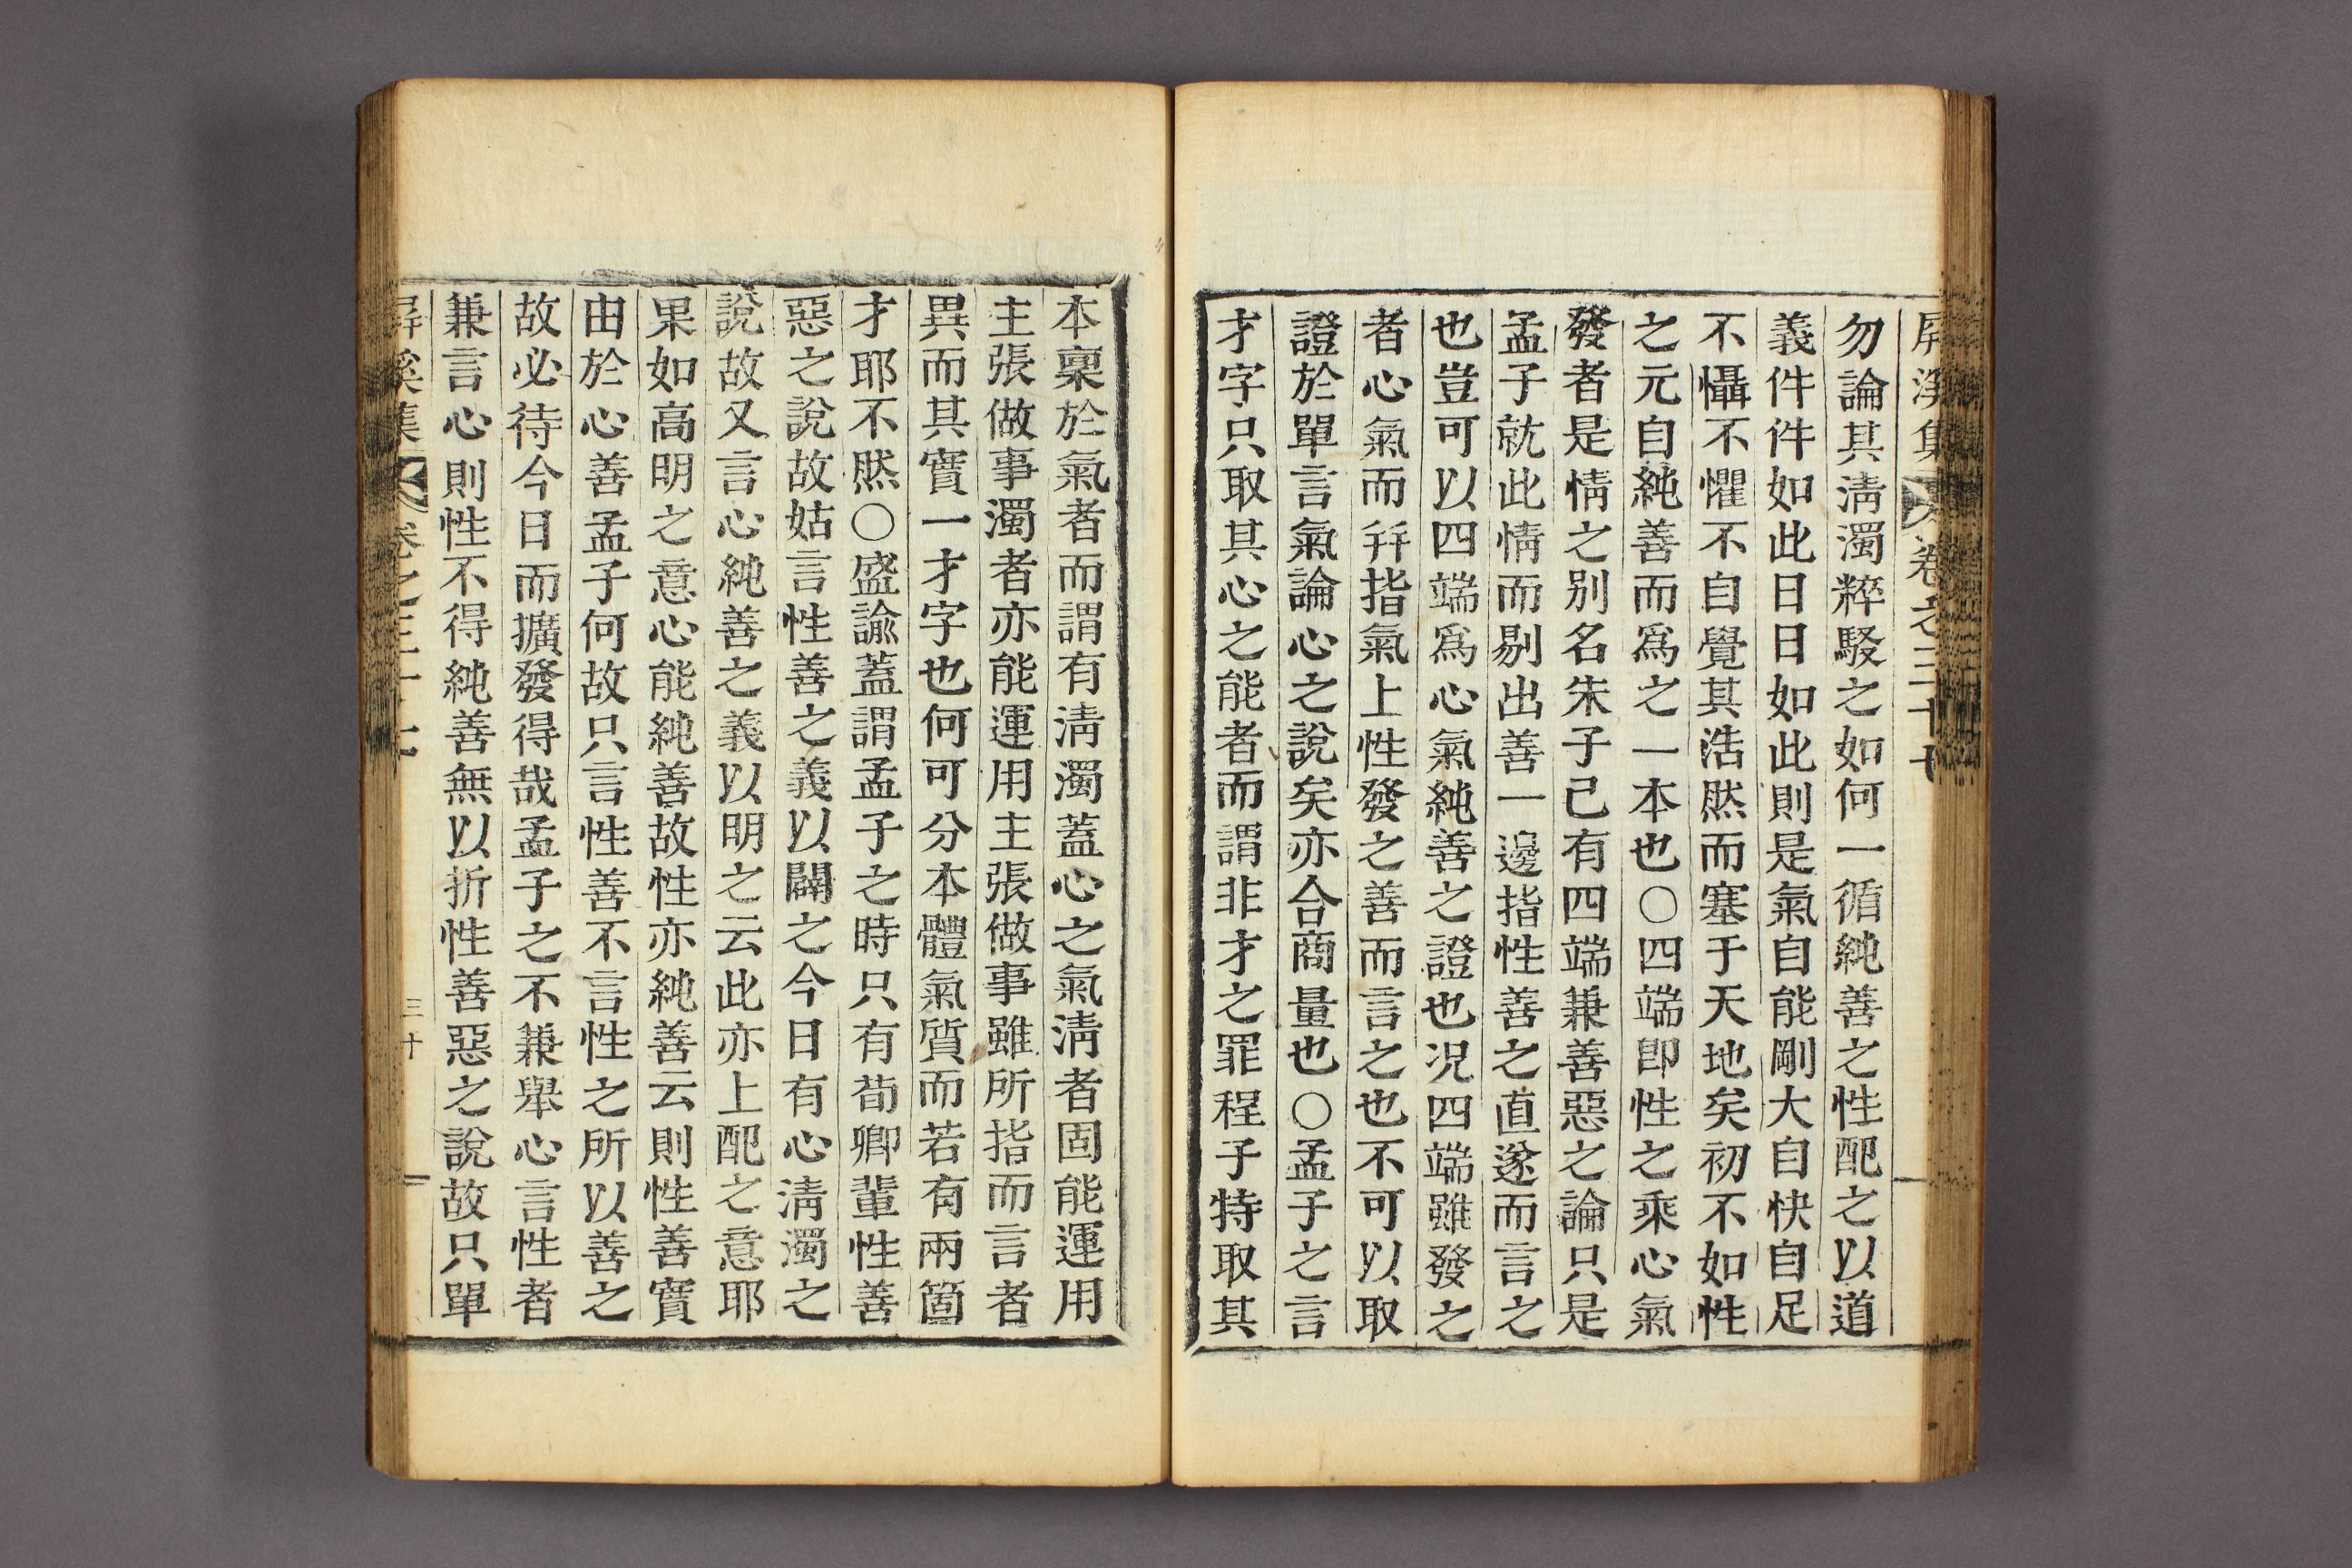 屏溪集 卷之三十七
勿論其淸濁粹駁之如何一循純善之性配之以道
義件件如此日日如此則是氣自能剛大自快自足
不懾不懼不自覺其浩然而塞于天地矣初不如性
之元自純善而爲之一本也○四端卽性之乘心氣
發者是情之别名朱子已有四端兼善惡之論只是
孟子就此情而剔出善一邊指性善之直遂而言之
也豈可以四端爲心氣純善之證也况四端雖發之
者心氣而幷指氣上性發之善而言之也不可以取
證於單言氣論心之說矣亦合商量也○孟子之言
才字只取其心之能者而謂非才之罪程子特取其
本稟於氣者而謂有淸濁蓋心之氣淸者固能運用
主張做事濁者亦能運用主張做事雖所指而言者
異而其實一才字也何可分本體氣質而若有兩箇
才耶不然○盛諭蓋謂孟子之時只有荀卿輩性善
惡之說故姑言性善之義以闢之今日有心淸濁之
說故又言心純善之義以明之云此亦上配之意耶
果如高明之意心能純善故性亦純善云則性善實
由於心善孟子何故只言性善不言性之所以善之
故必待今日而擴發得哉孟子之不兼擧心言性者
兼言心則性不得純善無以折性善惡之說故只單
屏溪集 卷之三十七 三十